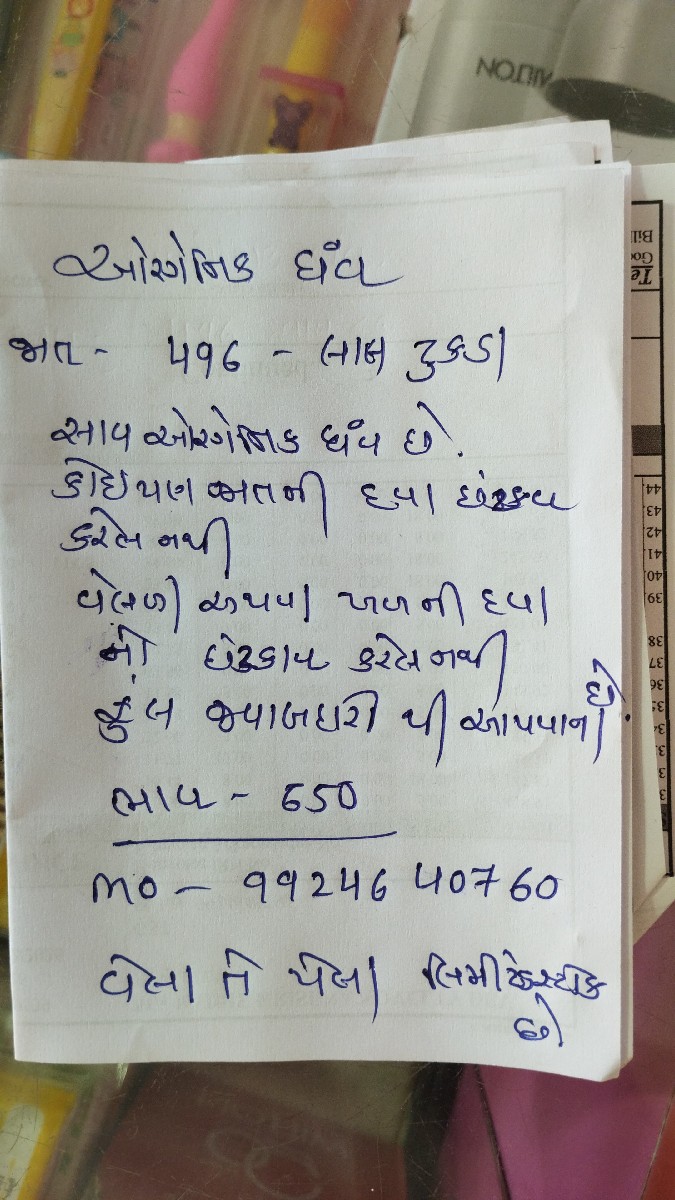 MILTON
ઓર્ગેનિક ઘંવ
જાત - 496 - લાલ ટુકડા
સાવ ઓર્ગેનિક ઘંવ છે.
કોઈપણ જાતની દવા છંટકાવ
કરેલ નથી
વેલળી અથવા ખળની દવા
નો છંટકાવ કરેલ નથી
ફુલ જવાબદારી થી આપવાના છે.
ભાવ - 650
MO - 99246 40760
વેલા તે પેલા લિમીટેસ્ટોક
છે
Bill
Goo
Te
44
43
42
41
40
39
38
37
36
35
34
3
3
3